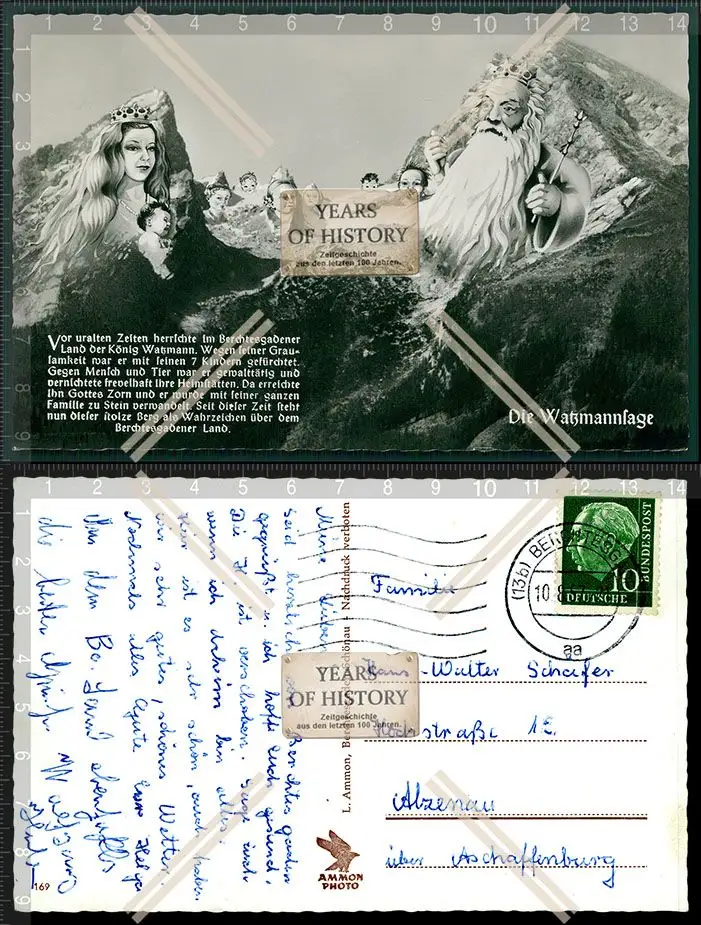 1 2 3 4 5 6 7 8 9 10 11 12 13 14
2
3
4
5
6
7
8
9
YEARS
OF HISTORY
Zeitgeschichte
aus den letzten 100 Jahren.
Vor uralten Zeiten herrſchte im Berchtesgadener
Land der König Watzmann. Wegen ſeiner Grau-
ſamkeit war er mit ſeinen 7 Kindern gefürchtet.
Gegen Menſch und Tier war er gewalttätig und
vernichtete frevelhaft ihre Heimſtätten. Da erreichte
ihn Gottes Zorn und er wurde mit ſeiner ganzen
Familie zu Stein verwandelt. Seit dieſer Zeit ſteht
nun dieſer ſtolze Berg als Wahrzeichen über dem
Berchtesgadener Land.
Die Watzmannſage
1 2 3 4 5 6 7 8 9 10 11 12 13 14
2
3
4
5
6
7
8
9
Meine
Seid herzlich Berchtesgaden
gegrüßt. ich hoffe Euch gesund,
Die ist verschoben. Sage euch
wenn ich daheim bin alles.
Hier ist es sehr schön, auch haben
wir sehr gutes, schönes Wetter.
Nochmals alles Gute
Aus dem Be. Land ebenfalls
die besten Wolfgang
L. Ammon, Schönau - Nachdruck verboten
AMMON
PHOTO
169
(13b)
10.8
aa
DEUTSCHE
BUNDESPOST
10
Familie
Hans-Walter Schäfer
straße 12.
Alzenau
über Aschaffenburg
YEARS
OF HISTORY
Zeitgeschichte
aus den letzten 100 Jahren.